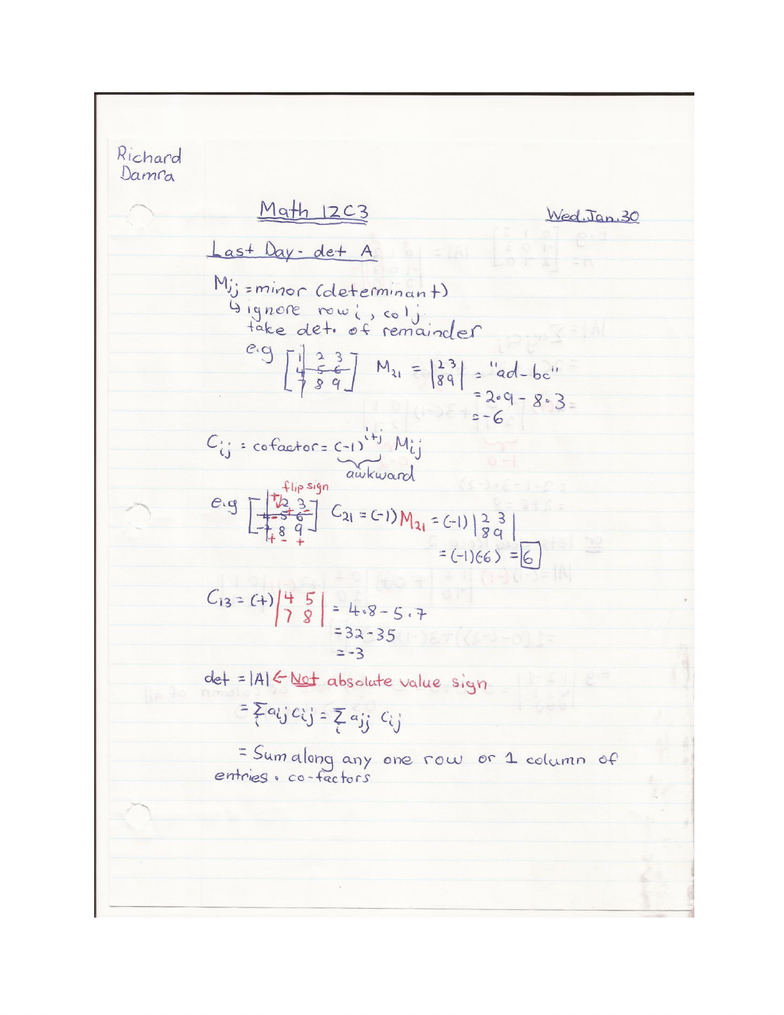 Richard
Damra
Math 12C3
Wed. Jan. 30
Last Day - det A
Mij = minor (determinant)
↳ ignore row i, col j
take det. of remainder
e.g [1 2 3 M21 = |2 3| = "ad-bc"
4 5 6 |8 9| = 2•9 - 8•3
7 8 9] = -6
Cij = cofactor = (-1)^i+j Mij
awkward
flip sign
e.g [1 2 3 C21 = (-1) M21 = (-1) |2 3|
4 5 6 |8 9|
7 8 9] = (-1)(-6) = 6
+ - +
C13 = (+) |4 5| = 4•8 - 5•7
|7 8| = 32-35
= -3
det = |A| ← Not absolute value sign
= Σi aij Cij = Σi ajj Cij
= Sum along any one row or 1 column of
entries • co-factors